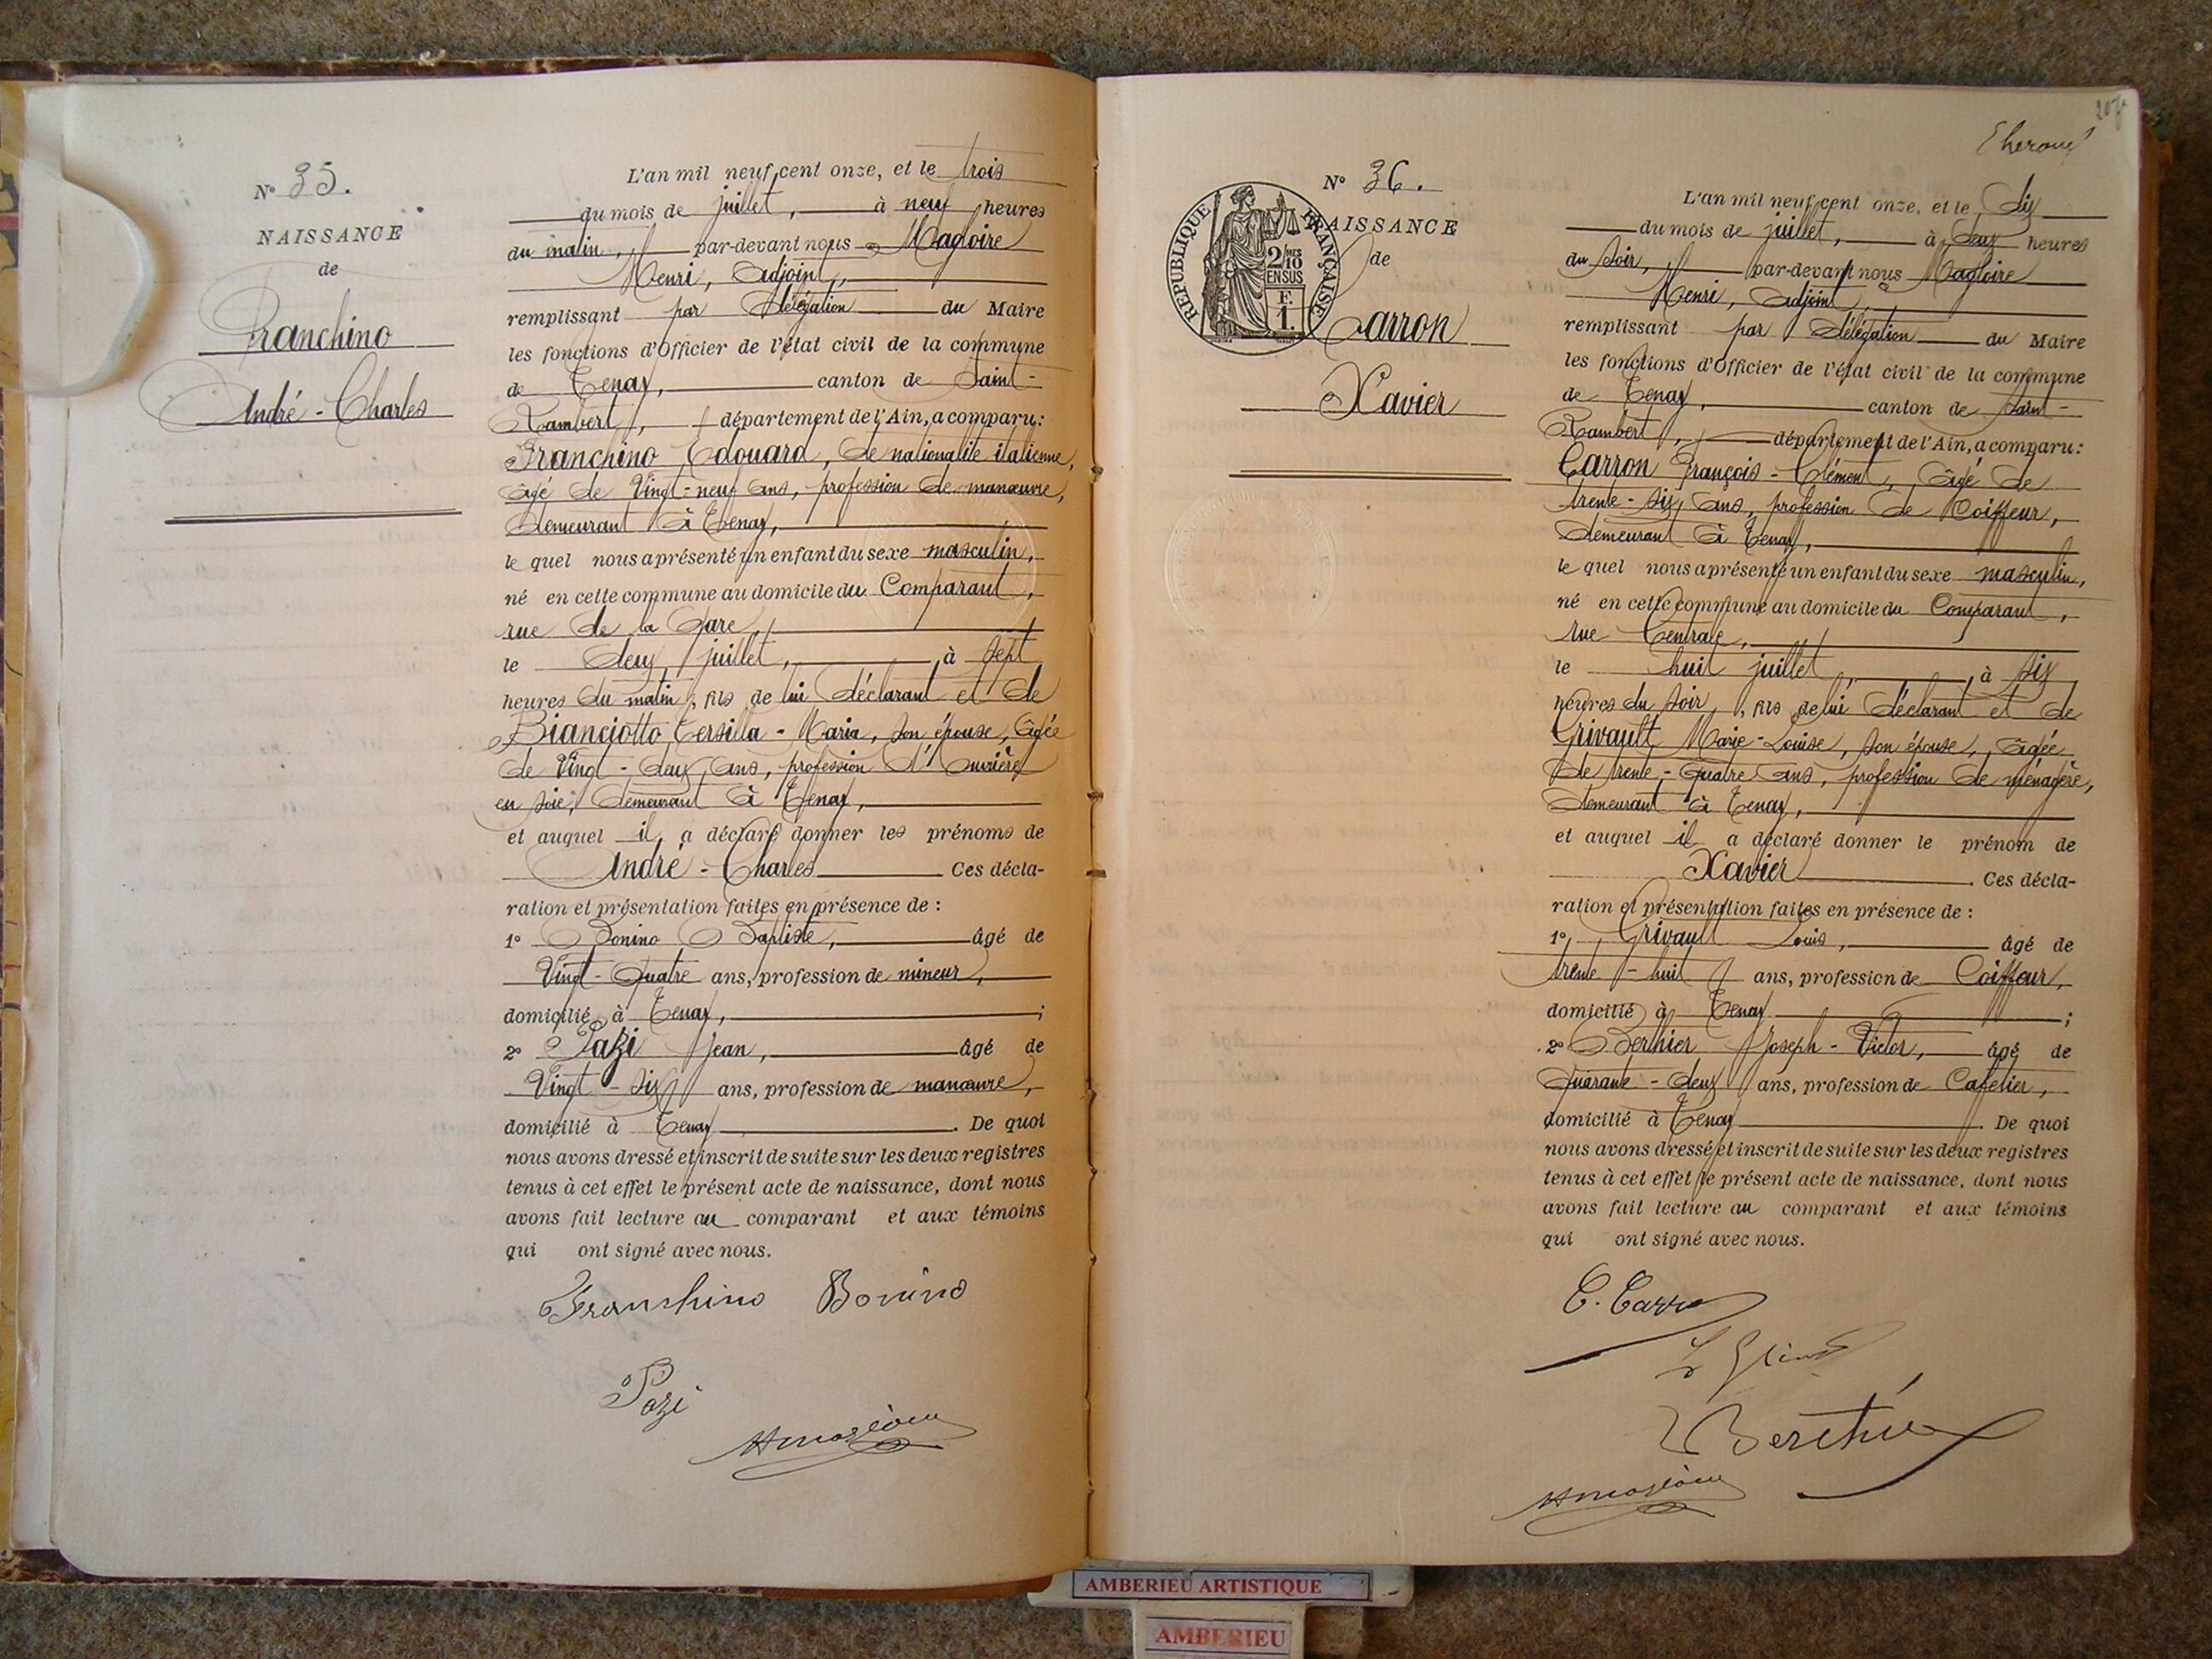 N° 35.
NAISSANCE
de
Franchino
André - Charles
L'an mil neuf cent onze, et le trois
du mois de juillet, à neuf heures
du matin, par-devant nous Magloire
Henri, adjoint,
remplissant par délégation du Maire
les fonctions d'Officier de l'état civil de la commune
de Tenay, canton de Saint-
Rambert, département de l'Ain, a comparu:
Franchino Edouard, de nationalité italienne,
âgé de vingt-neuf ans, profession de manœuvre,
demeurant à Tenay,
le quel nous a présenté un enfant du sexe masculin,
né en cette commune au domicile du Comparant,
rue de la Gare,
le deux juillet, à sept
heures du matin, fils de lui déclarant et de
Bianciotto Tersilla - Maria, son épouse, âgée
de vingt-deux ans, profession d'ouvrière
en soie, demeurant à Tenay,
et auquel il a déclaré donner les prénoms de
André - Charles Ces décla-
ration et présentation faites en présence de :
1° Bonino Baptiste, âgé de
Vingt-quatre ans, profession de mineur,
domicilié à Tenay, ;
2° Pazi Jean, âgé de
Vingt-six ans, profession de manœuvre,
domicilié à Tenay. De quoi
nous avons dressé et inscrit de suite sur les deux registres
tenus à cet effet le présent acte de naissance, dont nous
avons fait lecture au comparant et aux témoins
qui ont signé avec nous.
Franchino Bonino
Pazi
N° 36.
NAISSANCE
de
Carron
Xavier
REPUBLIQUE FRANÇAISE
2/10 MES
EN SUS
F.
1.
L'an mil neuf cent onze, et le dix
du mois de juillet, à deux heures
du soir, par-devant nous Magloire
Henri, adjoint,
remplissant par délégation du Maire
les fonctions d'Officier de l'état civil de la commune
de Tenay, canton de Saint-
Rambert, département de l'Ain, a comparu:
Carron François-Clément, âgé de
trente-six ans, profession de Coiffeur,
demeurant à Tenay,
le quel nous a présenté un enfant du sexe masculin,
né en cette commune au domicile du Comparant,
rue Centrale,
le huit juillet, à six
heures du soir, fils de lui déclarant et de
Grivault Marie-Louise, son épouse, âgée
de trente-quatre ans, profession de ménagère,
demeurant à Tenay,
et auquel il a déclaré donner le prénom de
Xavier. Ces décla-
ration et présentation faites en présence de :
1° Grivault Louis, âgé de
trente-huit ans, profession de Coiffeur,
domicilié à Tenay ;
2° Berthier Joseph-Victor, âgé de
quarante-deux ans, profession de Cafetier,
domicilié à Tenay. De quoi
nous avons dressé et inscrit de suite sur les deux registres
tenus à cet effet le présent acte de naissance, dont nous
avons fait lecture au comparant et aux témoins
qui ont signé avec nous.
C. Carron
Berthier
AMBERIEU ARTISTIQUE
AMBERIEU